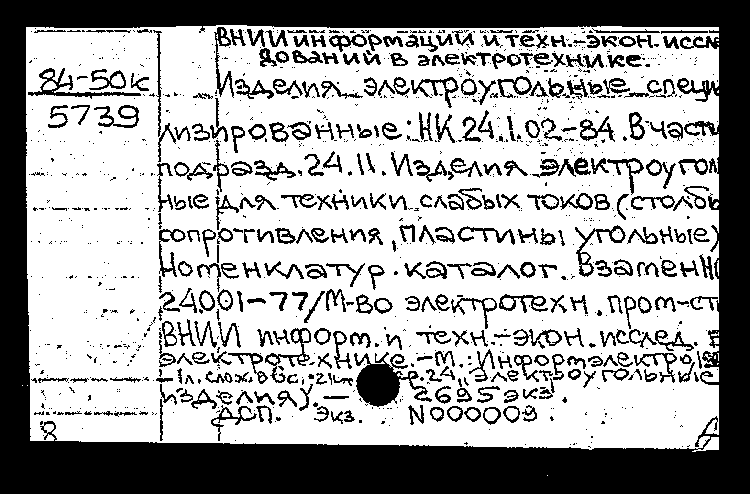 ВНИИ информации и техн.-экон. иссле
дований в электротехнике.
84-50к
Изделия электроугольные специ
5739
лизированные: НК 24.1.02-84. В част
подразд. 24.11. Изделия электроугол
ные для техники слабых токов (столбы
сопротивления, пластины угольные)
Номенклатур. каталог. Взамен Н
24.001-77/М-во электротехн. пром-ст
ВНИИ информ. и техн.-экон. исслед. в
электротехнике. - М.: Информэлектро, 19
- 1л. слож. в 6с.; 21 р. 24 „Электроугольные
изделия). - 2695 экз.
ДСП. Экз. N000009.
8